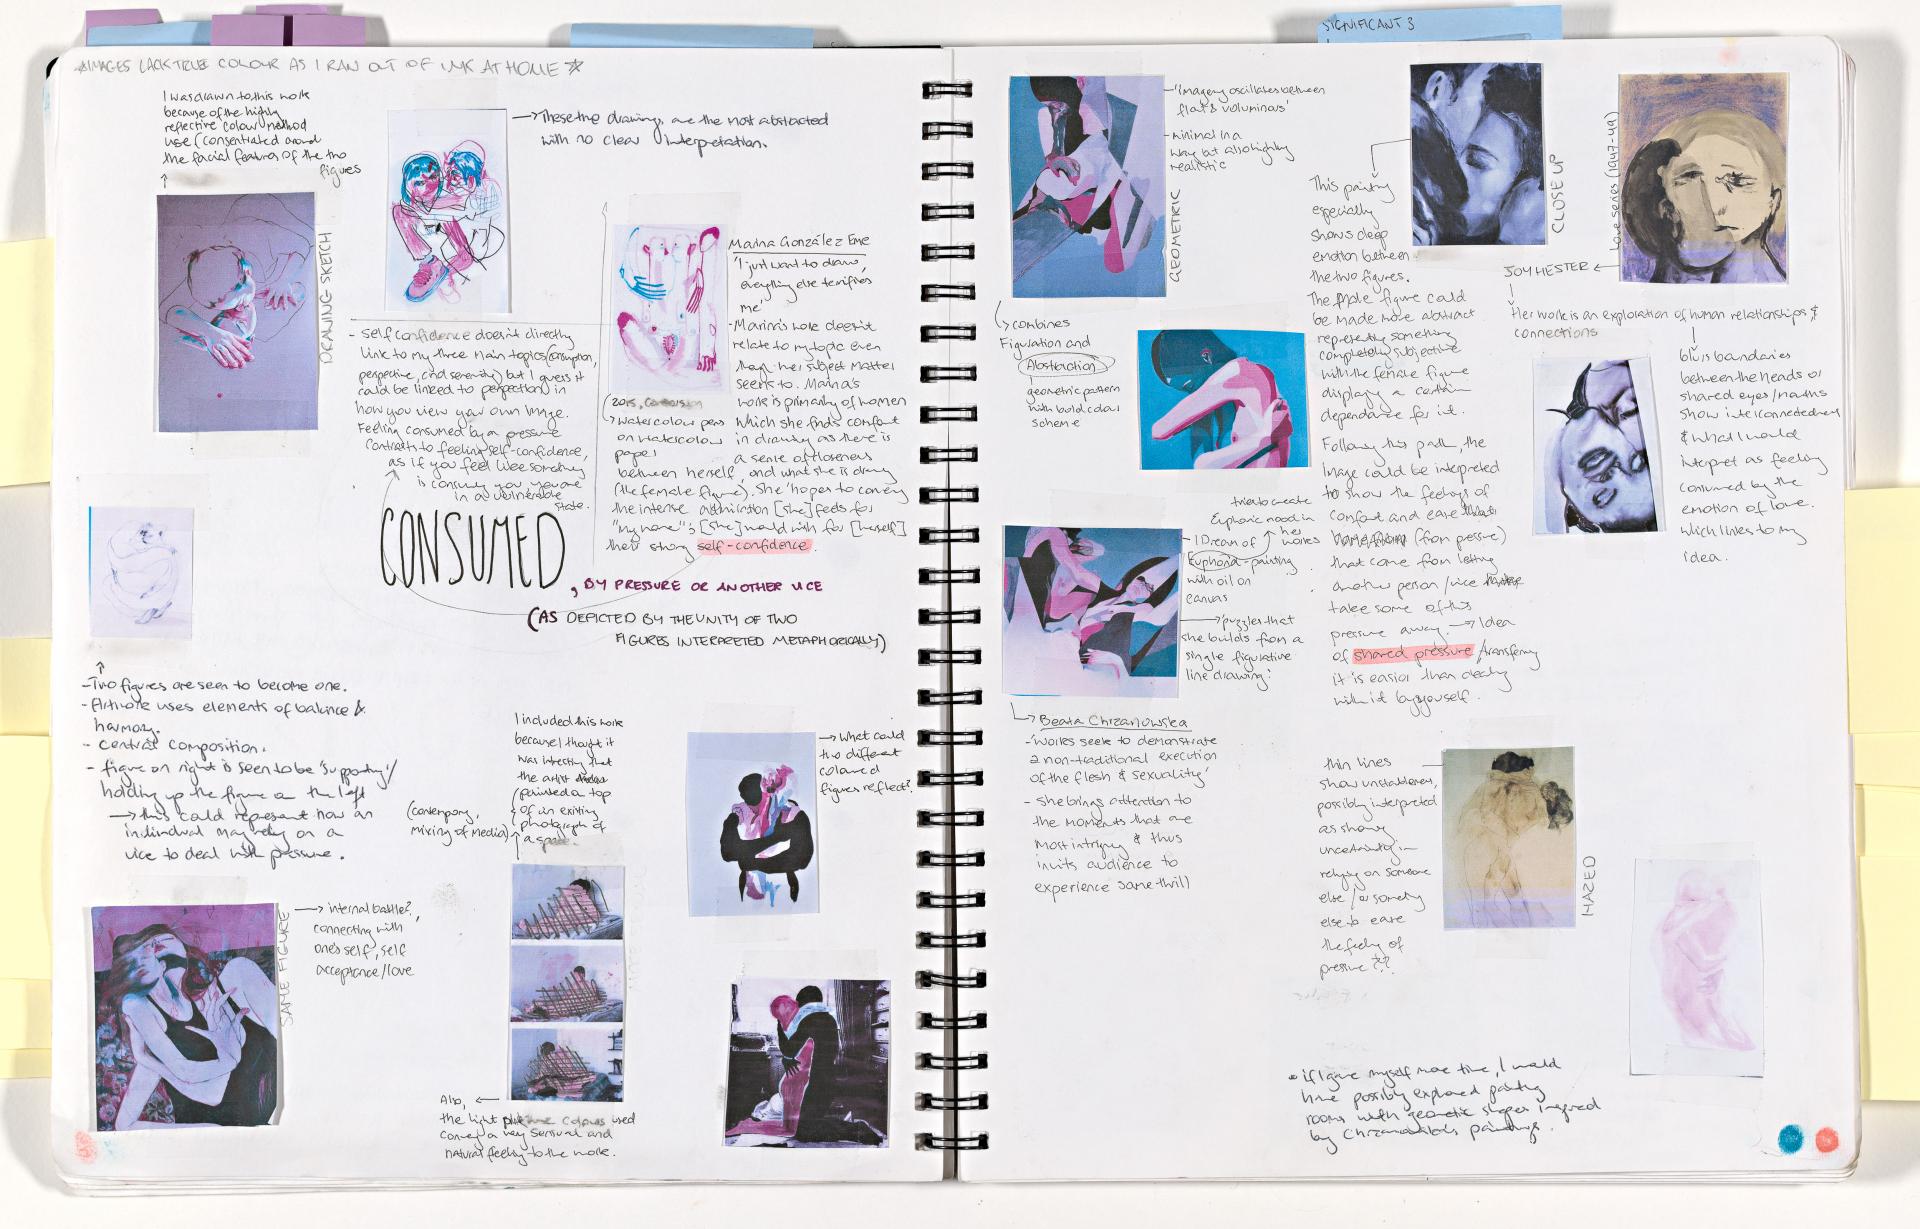 SIGNIFICANT 3
☆IMAGES LACK TRUE COLOUR AS I RAN OUT OF INK AT HOME☆
I was drawn to this work
because of the highly
reflective colour method
use (consentrated around
the facial features of the two
figures
→These the drawings are the most abstracted
with no clear interpretation.
DRAWING SKETCH
- Self confidence doesn't directly
link to my three main topics (consumption,
perspective, and serenity) but I guess it
could be linked to perspective in
how you view your own image.
Feeling consumed by a pressure
contrasts to feeling self-confidence,
as if you feel like something
is consuming you, you are
in a vulnerable
state.
Marina González Eme
'I just want to draw,
everything else terrifies
me'
- Marina's work doesn't
relate to my topic even
though her subject matter
seems to. Marina's
work is primarily of women
which she finds comfort
in drawing as there is
a sense of closeness
between herself, and what she is drawing
(the female figure). She 'hopes to convey
the intense admiration [she] feels for
[she] would wish for [herself]
their strong self-confidence.
2015,
Watercolour pens
on watercolour
paper
CONSUMED
, BY PRESSURE OR ANOTHER VICE
(AS DEPICTED BY THE UNITY OF TWO
FIGURES INTERPRETED METAPHORICALLY)
- Two figures are seen to become one.
- Artwork uses elements of balance &
harmony.
- Central composition.
- figure on right is seen to be 'supporting'/
holding up the figure on the left
→ this could represent how an
individual may rely on a
vice to deal with pressure.
I included this work
because I thought it
was interesting that
the artist
painted on top
of an existing
photograph of
a space.
(contempory,
mixing of media)
→ What could
two different
coloured
figures reflect?
SAME FIGURE
→ internal battle?,
connecting with
one's self, self
acceptance/love
Also,
the light colours used
convey a very sensual and
natural feeling to the work.
- 'Imagery oscillates between
flat & voluminous'
- minimal in a
way but also highly
realistic
GEOMETRIC
→ combines
Figuration and
Abstraction
geometric pattern
with bold colour
scheme
This painting
especially
shows deep
emotion between
the two figures.
The male figure could
be made more abstract
representing something
completely subjective
with the female figure
displaying a certain
dependance for it.
Following this path, the
image could be interpreted
to show the feelings of
comfort and ease
(from pressure)
that come from letting
another person/vice
take some of this
pressure away. → Idea
of shared pressure/transfering
it is easier than dealing
with it by yourself.
CLOSE UP
Love series (1947-49)
JOY HESTER
Her work is an exploration of human relationships &
connections
blurs boundaries
between the heads or
shared eyes/mouths
show interconnectedness
& what I would
interpret as feeling
consumed by the
emotion of love.
which links to my
idea.
tries to create
Euphoric mood in
her works
- I Dream of
Euphoria - painting
with oil on
canvas
→ 'puzzles that
she builds from a
single figurative
line drawing'
→ Beata Chrzanowska
- 'works seek to demonstrate
a non-traditional execution
of the flesh & sexuality'
- she brings attention to
the moments that are
most intriguing & thus
invites audience to
experience same thrill
thin lines
show unstableness,
possibly interpreted
as showing
uncertainty in
relying on someone
else/or something
else to ease
the feeling of
pressure??
HAZED
• if I gave myself more time, I would
have possibly explored painting
rooms with geometric shapes inspired
by Chrzanowska's paintings.